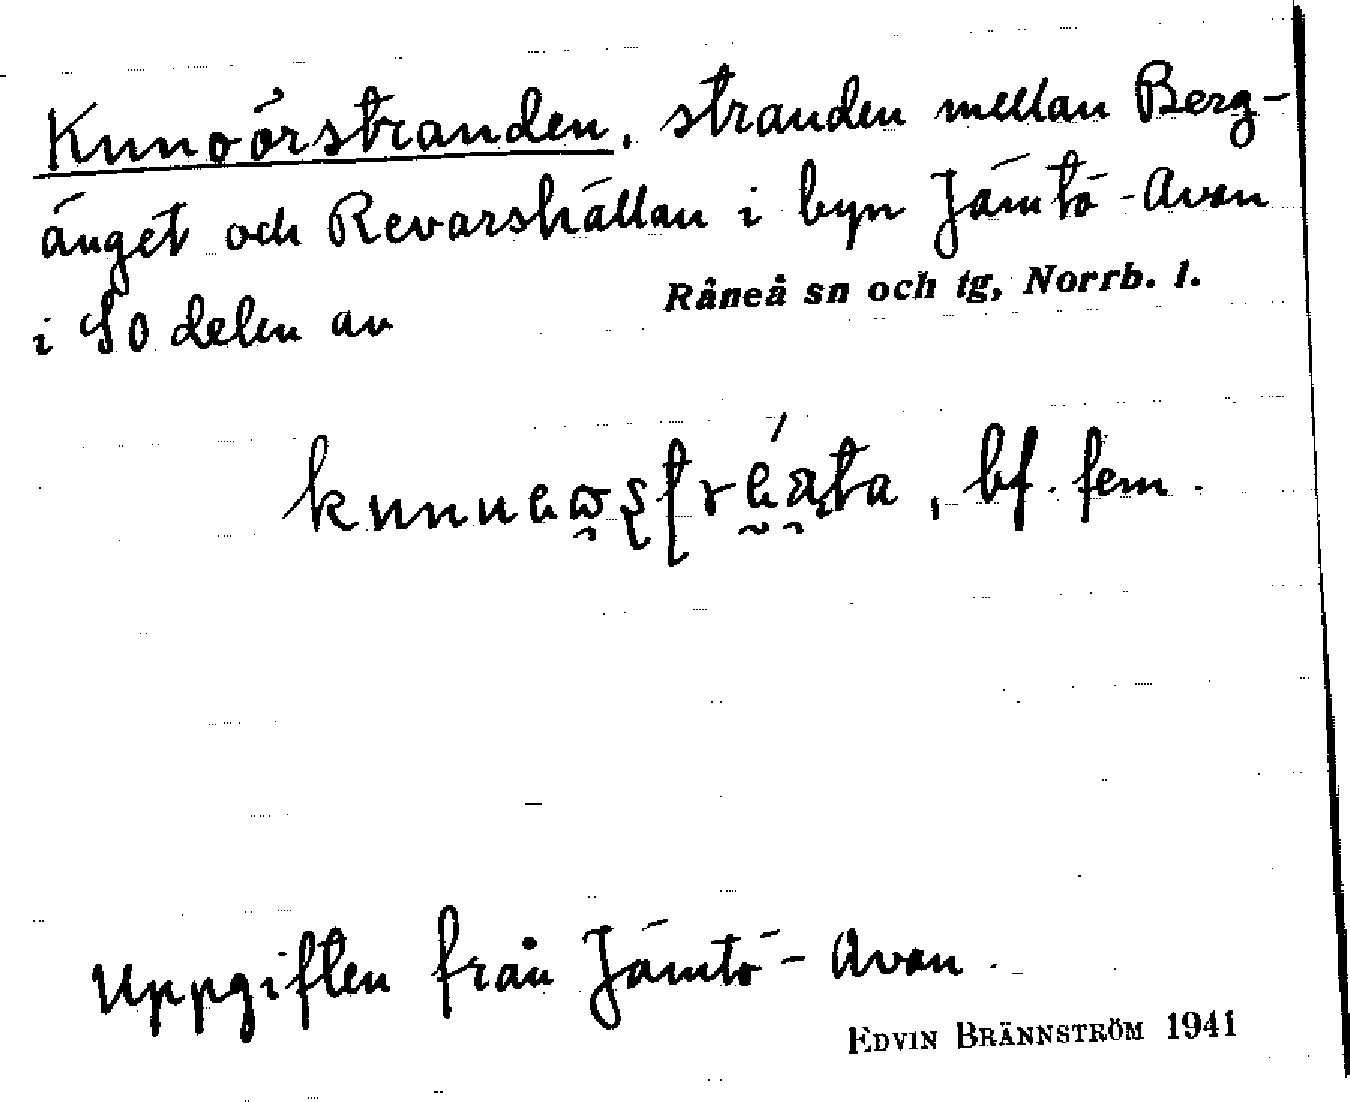 Knnoörstranden, stranden mellan Berg-
änget och Revarshällan i byn Jämtö-Avan
Råneå sn och tg, Norrb. l.
i SO delen av
bf. fem.
Uppgiften från Jämtö-Avan.
EDVIN BRÄNNSTRÖM 1941